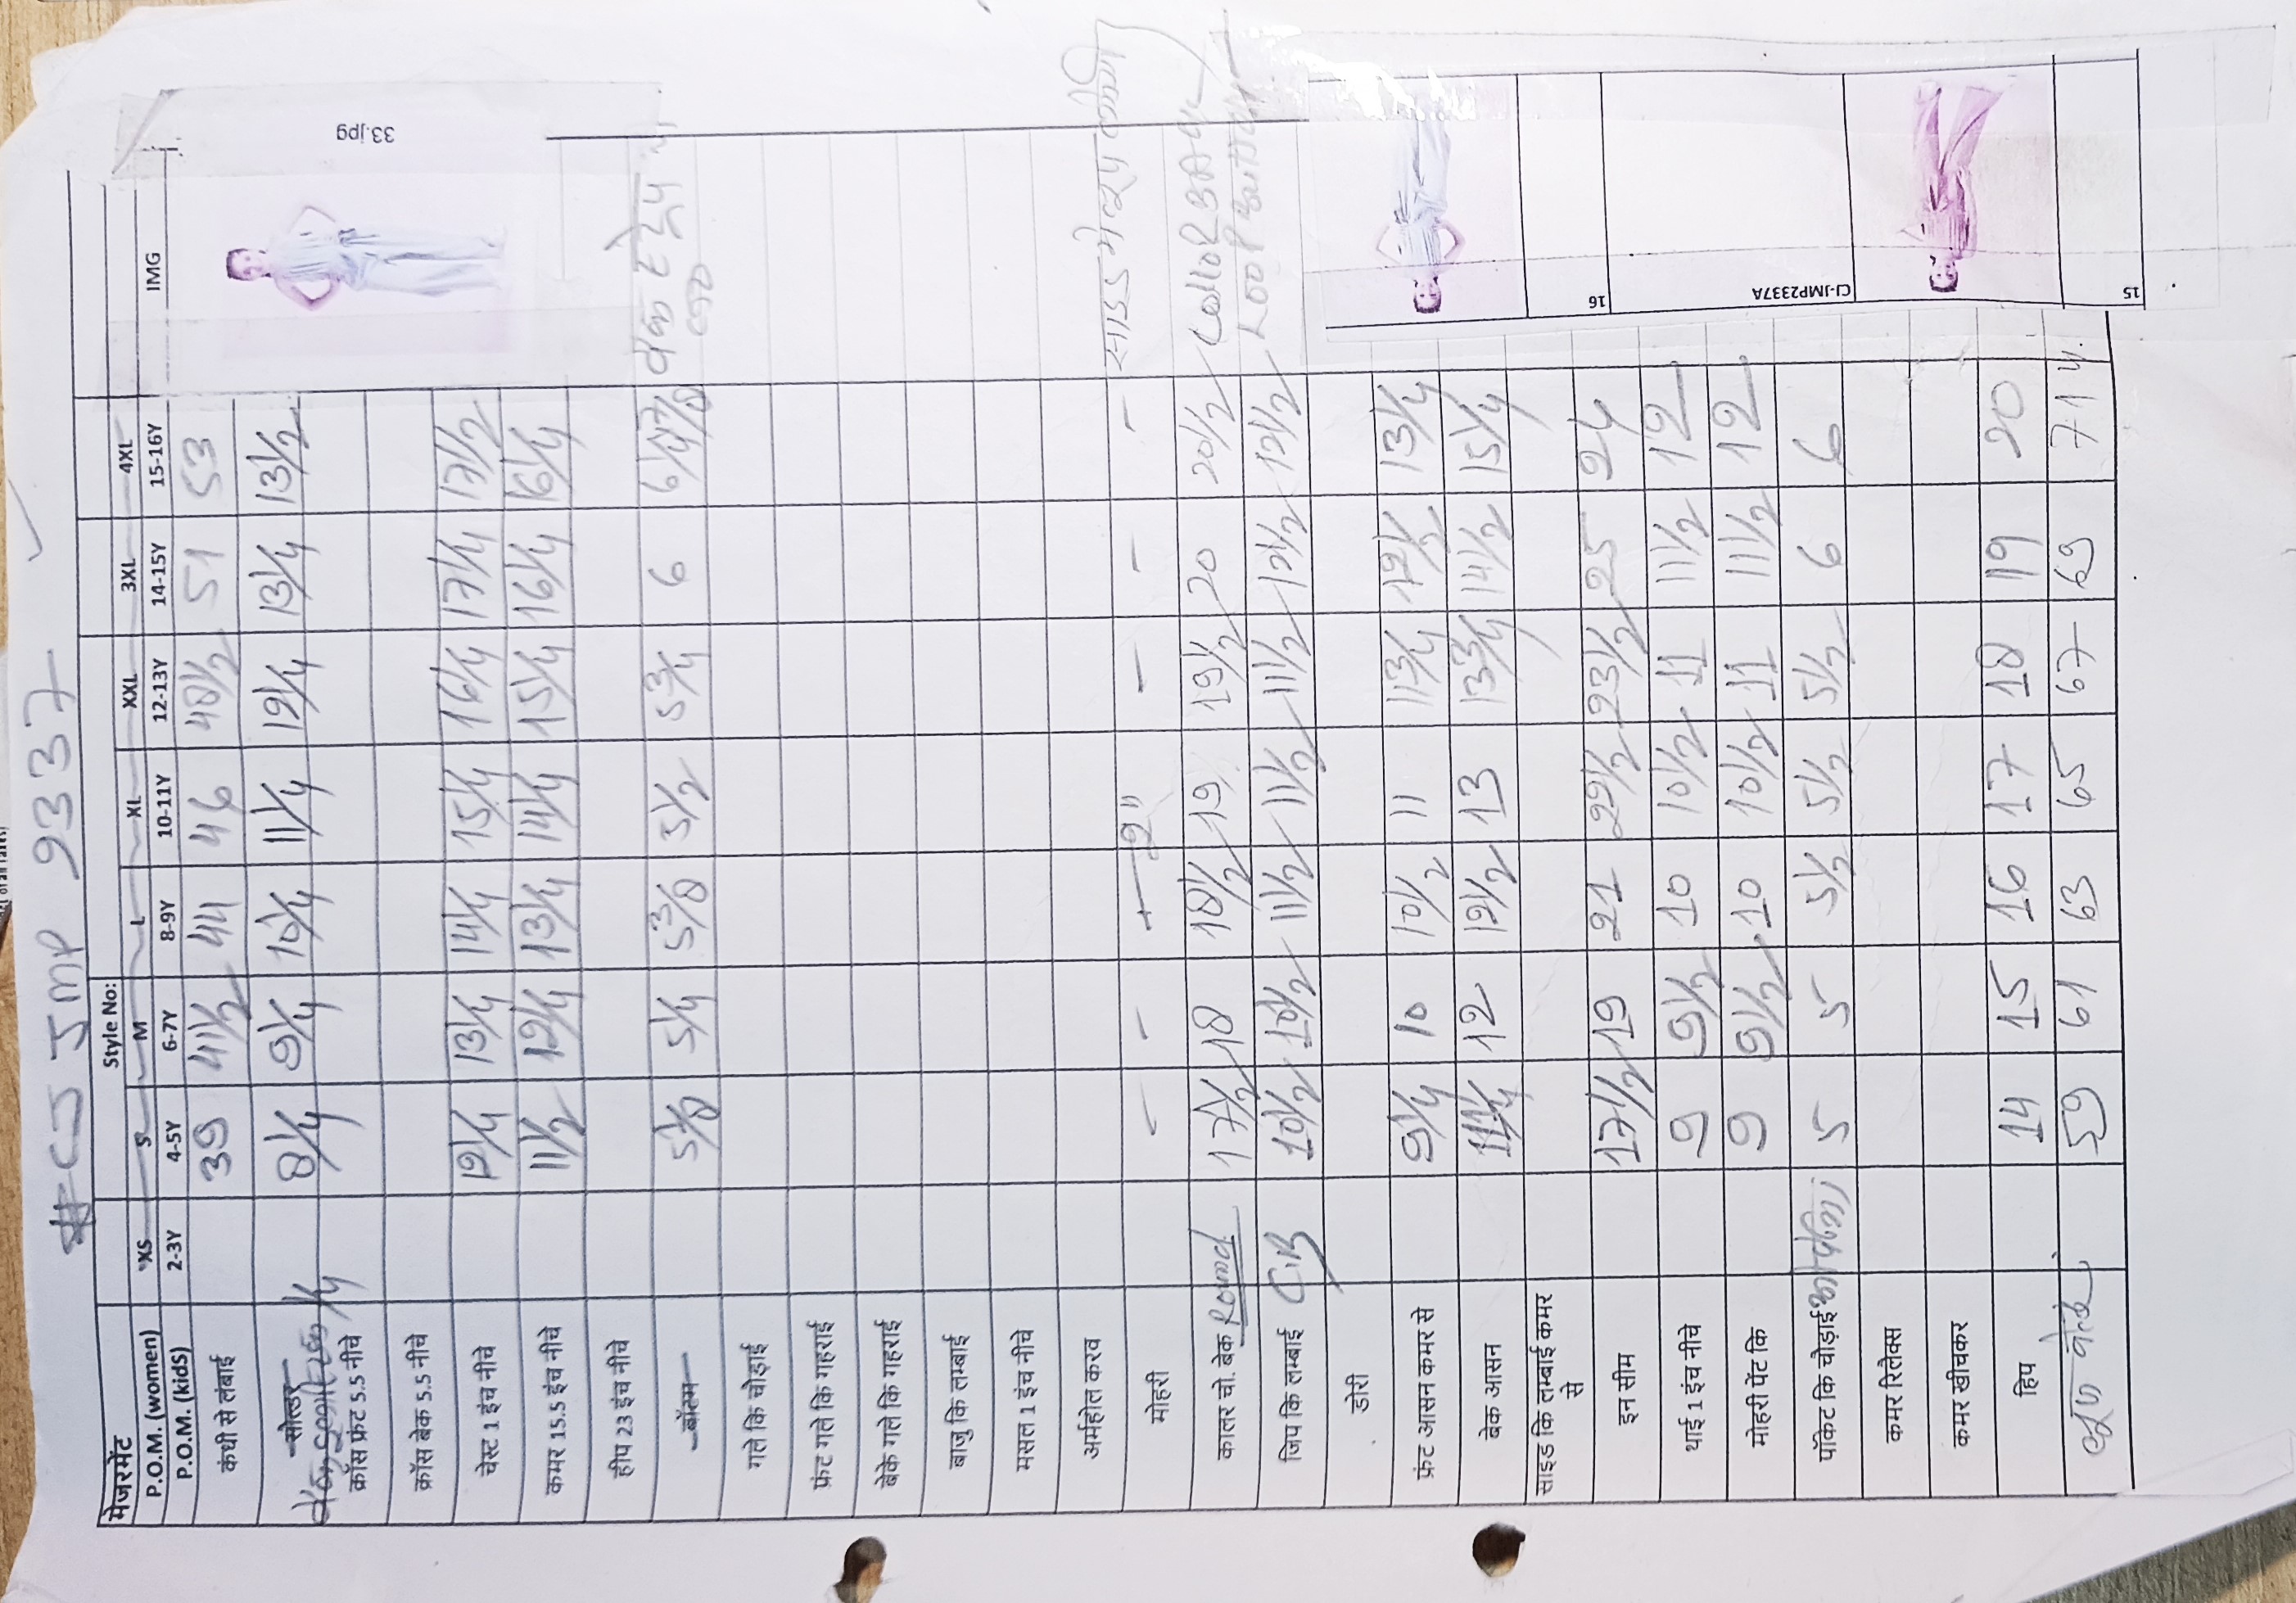 # CJ JMP 9337
Style No:
मेजरमेंट IMG
P.O.M. (women) XS S M L XL XXL 3XL 4XL
P.O.M. (kids) 2-3Y 4-5Y 6-7Y 8-9Y 10-11Y 12-13Y 14-15Y 15-16Y
कंधी से लंबाई 39 41 1/2 44 46 48 1/2 51 53
सोल्डर 8 1/4 9 1/4 10 1/4 11 1/4 12 1/4 13 1/4 13 1/2
क्रॉस फ्रंट 5.5 नीचे 1/4
क्रॉस बेक 5.5 नीचे
चेस्ट 1 इंच नीचे 12 1/4 13 1/4 14 1/4 15 1/4 16 1/4 17 1/4 17 1/2
कमर 15.5 इंच नीचे 11 1/2 12 1/4 13 1/4 14 1/4 15 1/4 16 1/4 16 1/4
हीप 23 इंच नीचे
बॉटम 5 1/8 5 1/4 5 3/8 5 1/2 5 3/4 6
गले कि चोड़ाई
फ्रंट गले कि गहराई
बेके गले कि गहराई
बाजु कि लम्बाई
मसल 1 इंच नीचे
अर्महोल करव
मोहरी - - 2" - - - साइड मे लूप लगेगी
कालर चो. बेक Round 17 1/2 18 18 1/2 19 19 1/2 20 20 1/2 Collor BACK
जिप कि लम्बाई 10 1/2 10 1/2 11 1/2 11 1/2 11 1/2 12 1/2 12 1/2 Loop Button
डोरी
फ्रंट आसन कमर से 9 1/4 10 10 1/2 11 11 3/4 12 1/2 13 1/4
बेक आसन 11 1/4 12 12 1/2 13 13 3/4 14 1/2 15 1/4
साइड कि लम्बाई कमर
से
इन सीम 17 1/2 19 21 22 1/2 23 1/2 25 24
थाई 1 इंच नीचे 9 9 1/2 10 10 1/2 11 11 1/2 12
मोहरी पेंट कि 9 9 1/2 10 10 1/2 11 11 1/2 12
पॉकेट कि चोड़ाई 5 5 5 1/2 5 1/2 5 1/2 6 6
कमर रिलेक्स
कमर खीचकर
हिप 14 15 16 17 18 19 20
59 61 63 65 67 69 71
33.jpg
16
CI-JMP2337A
15